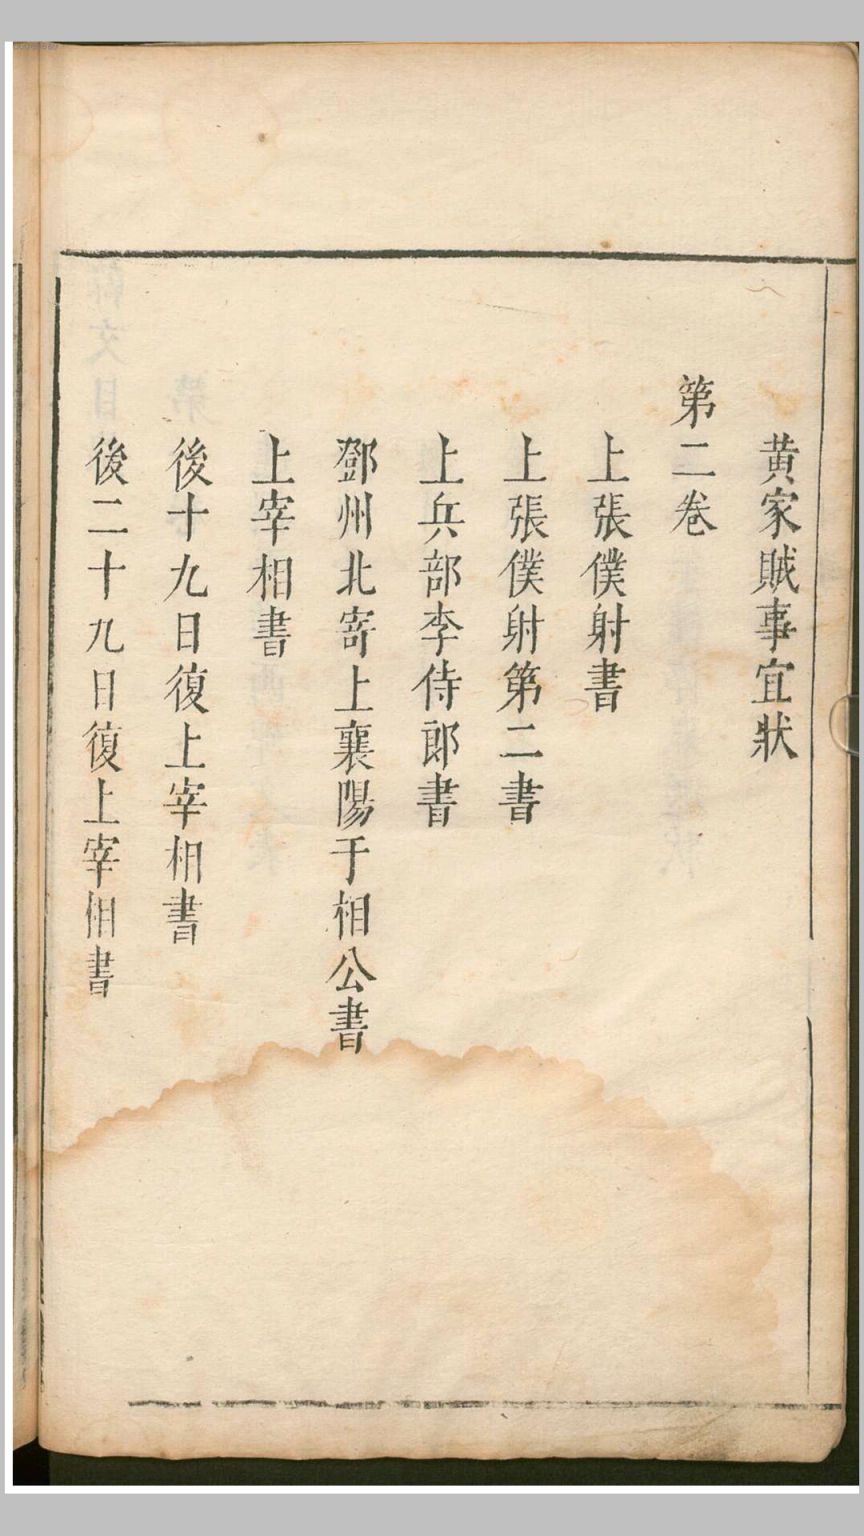 黄家賊事宜狀
第二卷
上張僕射書
上張僕射第二書
上兵部李侍郎書
鄧州北寄上襄陽于相公書
上宰相書
後十九日復上宰相書
後二十九日復上宰相書